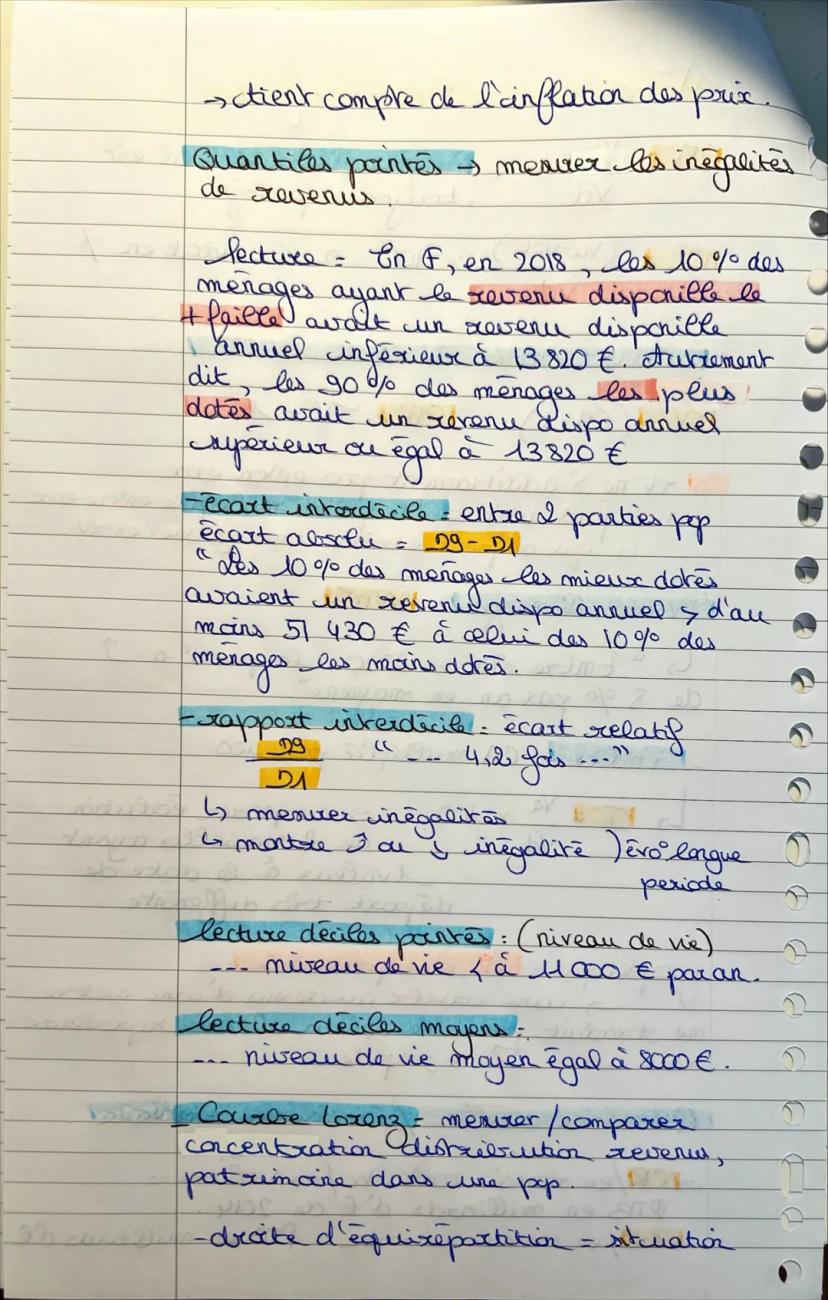 → tient compte de l'inflation des prix.
Quantiles pointés → mesurer les inégalités
de revenus.
lecture = En F, en 2018, les 10 % des
ménages ayant le revenu disponible le
+ faible avait un revenu disponible
annuel inférieur à 13 820 €. Autrement
dit, les 90 % des ménages les plus
dotés avait un revenu dispo annuel
supérieur ou égal à 13 820 €
- écart interdécile = entre 2 parties pop
écart absolu = D9 - D1
"Les 10 % des ménages les mieux dotés
avaient un revenu dispo annuel > d'au
moins 51 430 € à celui des 10 % des
ménages les moins dotés.
- rapport interdécile = écart relatif
D9 " --- 4,2 fois ---"
D1
↳ mesurer inégalités
↳ montre ↑ ou ↓ inégalité ) évo° longue
periode
lecture déciles pointés : (niveau de vie)
--- niveau de vie < à 11 000 € par an.
lecture déciles moyens =
--- niveau de vie moyen égal à 8000 €.
- Courbe Lorenz = mesurer / comparer
concentration distribution revenus,
patrimoine dans une pop.
- droite d'équirépartition = situation